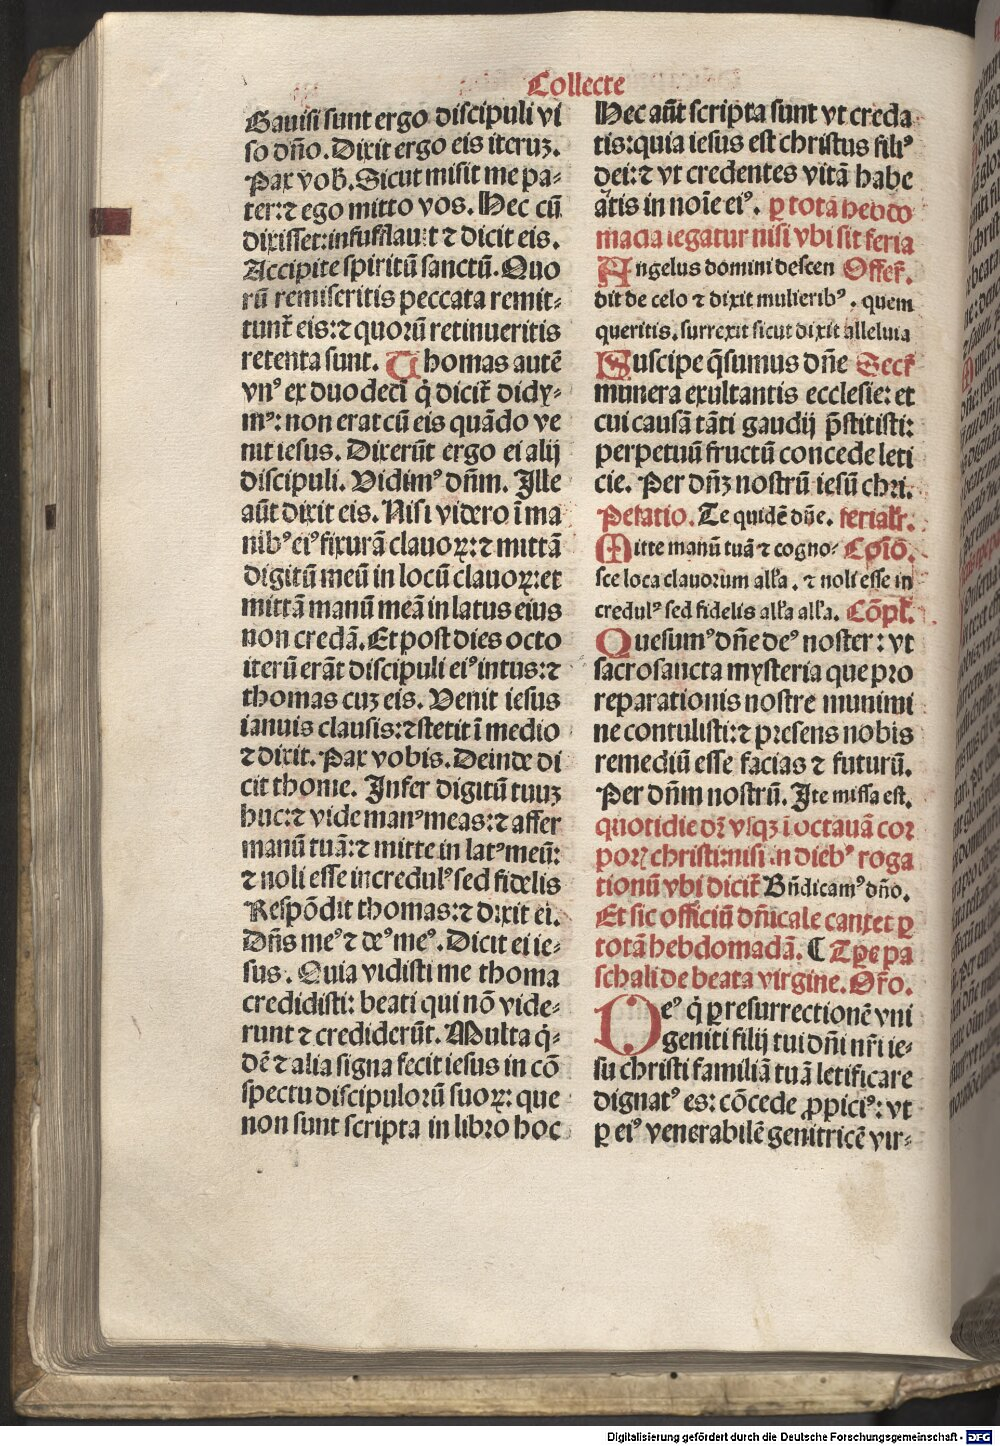 Collecte
Gauisi sunt ergo discipuli vi
so dño. Dixit ergo eis iteruꝫ.
Pax vob̃. Sicut misit me pa-
ter: ⁊ ego mitto vos. Hec cũ
dixisset: insufflauit ⁊ dicit eis.
Accipite spiritũ sanctũ. Quo
rũ remiseritis peccata remit-
tunt̃ eis: ⁊ quorũ retinueritis
retenta sunt. Thomas autẽ
vnꝰ ex duodecĩ q̇ dicit̃ didy-
mꝰ: non erat cũ eis quãdo ve
nit iesus. Dixerũt ergo ei alij
discipuli. Vidimꝰ dñm. Ille
aũt dixit eis. Nisi videro ĩ ma
nibꝰ eiꝰ fixurã clauoꝝ: ⁊ mittã
digitũ meũ in locũ clauoꝝ: et
mittã manũ meã in latus eius
non credã. Et post dies octo
iterũ erãt discipuli eiꝰ intus: ⁊
thomas cuꝫ eis. Venit iesus
ianuis clausis: ⁊ stetit ĩ medio
⁊ dixit. Pax vobis. Deinde di
cit thome. Infer digitũ tuuꝫ
huc: ⁊ vide manꝰ meas: ⁊ affer
manũ tuã: ⁊ mitte in latꝰ meũ:
⁊ noli esse incredulꝰ sed fidelis
Respõdit thomas: ⁊ dixit ei.
Dñs meꝰ ⁊ deꝰ meꝰ. Dicit ei ie-
sus. Quia vidisti me thoma
credidisti: beati qui nõ vide-
runt ⁊ crediderũt. Multa q̇-
dẽ ⁊ alia signa fecit iesus in cõ
spectu discipulorũ suoꝝ: que
non sunt scripta in libro hoc
Hec aũt scripta sunt vt creda
tis: quia iesus est christus filiꝰ
dei: ⁊ vt credentes vitã habe
ãtis in noĩe eiꝰ. ꝑ totã hebdo
mada legatur nisi vbi sit feria
Angelus domini descen Offer̃.
dit de celo ⁊ dixit mulieribꝰ. quem
queritis. surrexit sicut dixit alleluia
Suscipe q̃sumus dñe Secr̃
munera exultantis ecclesie: et
cui causã tãti gaudij p̃stitisti:
perpetuũ fructũ concede leti
cie. Per dñꝫ nostrũ iesũ chri.
Prefatio. Te quidẽ dñe. ferialr̃.
Mitte manũ tuã ⁊ cogno- Cõiõ.
sce loca clauorum all'a. ⁊ noli esse in
credulꝰ sed fidelis all'a all'a. Cõpl̃.
Quesumꝰ dñe deꝰ noster: vt
sacrosancta mysteria que pro
reparationis nostre munimi
ne contulisti: ⁊ presens nobis
remediũ esse facias ⁊ futurũ.
Per dñm nostrũ. Ite missa est.
quotidie dr̃ vsqꝫ ĩ octauã cor
porꝭ christi: nisi in diebꝰ roga
tionũ vbi dicit̃ Bñdicamꝰ dño.
Et sic officiũ dñicale cantet̃ ꝑ
totã hebdomadã. ¶ Tꝑe pa
schali de beata virgine. Or̃o.
Deꝰ q̇ ꝑ resurrectionẽ vni
geniti filij tui dñi nr̃i ie-
su christi familiã tuã letificare
dignatꝰ es: cõcede ꝓpiciꝰ: vt
ꝑ eiꝰ venerabilẽ genitricẽ vir-
Digitalisierung gefördert durch die Deutsche Forschungsgemeinschaft - DFG